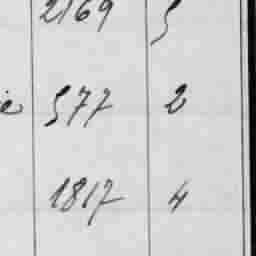 2169 5
ie 577 2
1817 4